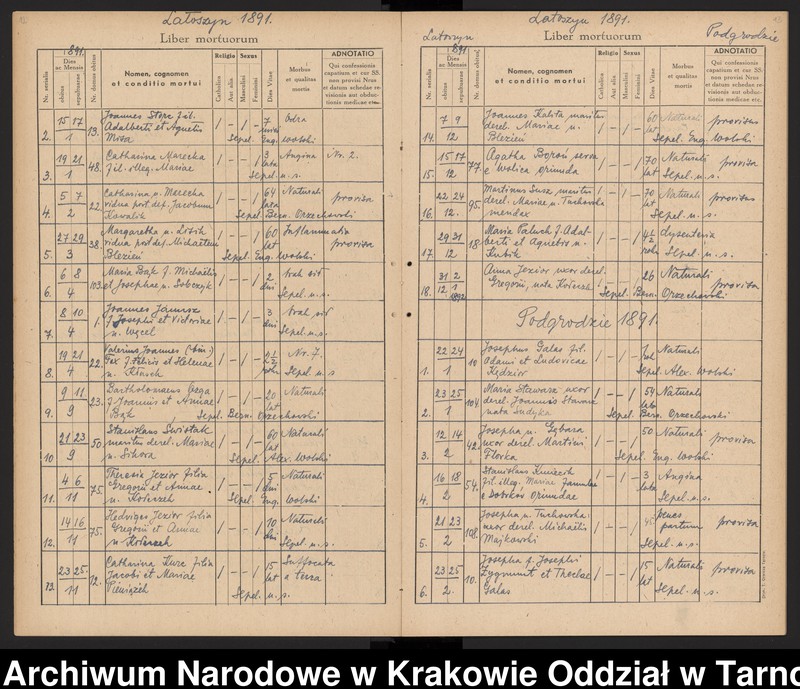 Latoszyn 1891.
Liber mortuorum
1891.
Nr. serialis
Dies ac Mensis
obitus
sepulturae
Nr. domus obitus
Nomen, cognomen
et conditio mortui
Religio
Catholica
Aut alia
Sexus
Masculini
Feminini
Dies Vitae
Morbus
et qualitas
mortis
ADNOTATIO
Qui confessionis
capatism et cur SS.
non provisi Nrus
et datum schedae re
visionis aut obduc-
tionis medicae etc.
2.
15 17
1
13.
Joannes Store fil.
Adalberti et Agnetis
Misa
1 – 1 –
7
Odra
Sepel. Eug. Wolski
3.
19 21
1
48.
Catharina Marecka
fil. illeg. Mariae
1 – – 1
3
lata
Angina Nr. 2.
Sepel. u. s.
4.
5 7
2
22.
Catharina n. Marecha
vidua post def. Jacobum
Kowalik
1 – – 1
64
lata
Naturali
provisa
Sepel. Bern. Orzechowski
5.
27 29
3
38.
Margaretha n.
vidua post def. Michaelem
Blezień
1 – – 1
60
lat
Inflammatio
provisa
Sepel. Eug. Wolski
6.
6 8
4
103.
Maria Bąk f. Michaelis
et Josephae n. Sobczyk
1 – – 1
2
dni
brak sił
Sepel. u. s.
7.
8 10
4
1.
Joannes Janusz
f. Josephi et Victoriae
n. Węcel
1 – 1 –
3
dni
brak sił
Sepel. u. s.
8.
19 21
4
22.
Valerius Joannes (bin.)
f. Felicis et Helenae
n.
1 – 1 –
Nr. 7.
Sepel. u. s.
9.
9 11
9
23.
Bartholomaeus
f. Joannis et Annae
Bąk
1 – 1 –
20
lat
Naturali
Sepel. Bern. Orzechowski
10
21 23
9
50.
Stanislaus Świstak
maritus derel. Mariae
n. Sikora
1 – 1 –
60
lat
Naturali
Sepel. Alex. Wolski
11.
4 6
11
75.
Theresia Jezior filia
Gregorii et Annae
n. Kołaczek
1 – – 1
5
dni
Naturali
Sepel. Eug. Wolski
12.
14 16
11
75.
Hedvigis Jezior filia
Gregorii et Annae
n. Kołaczek
1 – – 1
10
dni
Naturali
Sepel. u. s.
13.
23 25.
11
12.
Catharina Kurc filia
Jacobi et Mariae
Pieniążek
1 – – 1
15
lat
Suffocata
a terra
Sepel. u. s.
Latoszyn 1891.
Liber mortuorum
Latoszyn
Podgrodzie
1891
Nr. serialis
Dies ac Mensis
obitus
sepulturae
Nr. domus obitus
Nomen, cognomen
et conditio mortui
Religio
Catholica
Aut alia
Sexus
Masculini
Feminini
Dies Vitae
Morbus
et qualitas
mortis
ADNOTATIO
Qui confessionis
capatism et cur SS.
non provisi Nrus
et datum schedae re
visionis aut obduc-
tionis medicae etc.
14.
7 9
12
Joannes Kalita maritus
derel. Mariae n.
Blezień
1 – 1 –
60
lat
Naturali
provisus
Sepel. Eug. Wolski
15.
15 17
12
77.
Agatha Boroń serva
e Wolica oriunda
1 – – 1
70
lat
Naturali
provisa
Sepel. u. s.
16.
22 24
12.
95.
Martinus Susz, maritus
derel. Mariae n. Tuchowska
mendax
1 – 1 –
70
lat
Naturali
provisus
Sepel. u. s.
17.
29 31
12
18
Maria Paluch f. Adal-
berti et Agnetis n.
Kubik
1 – – 1
4½
roku
dysenteria
Sepel. u. s.
18.
31 2
12 1
1892
Anna Jezior uxor derel.
Gregorii, nata Kołaczek
1 – – 1
26
Naturali
provisa
Sepel. Bern. Orzechowski
Podgrodzie 1891.
1.
22 24
1
10
Josephus Galas fil.
Adami et Ludovicae
Kędzior
1 – 1 –
1
rok
Naturali
Sepel. Alex. Wolski
2.
23 25
1
104
Maria Stawarz uxor
derel. Joannis Stawarz
nata Sudyka
1 – – 1
54
lata
Naturali
Sepel. Bern. Orzechowski
3.
12 14
2
42.
Josepha n. Gębara
uxor derel. Martini
Florka
1 – – 1
50
Naturali
provisa
Sepel. Eug. Wolski
4.
16 18
2
54.
Stanislaus
fil. illeg. Mariae famulae
e Borków oriundae
1 – 1 –
3
lata
Angina
Sepel. u. s.
5.
21 23
2
108.
Josepha n. Tuchowska
uxor derel. Michaelis
Majkowski
1 – – 1
penes
partum
provisa
Sepel. u. s.
6.
23 25
2.
10.
Josepha f. Josephi
Zygmunt et Theclae
Galas
1 – – 1
15
lat
Naturali
provisa
Sepel. u. s.
Archiwum Narodowe w Krakowie Oddział w Tarno